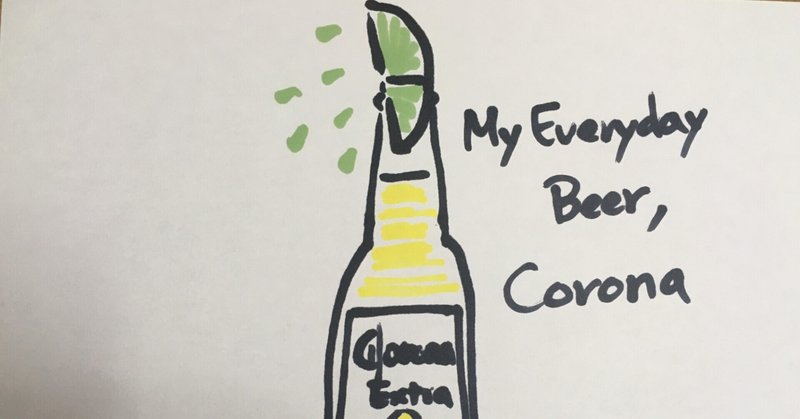 My Everyday
Beer,
Corona
Corona
Extra